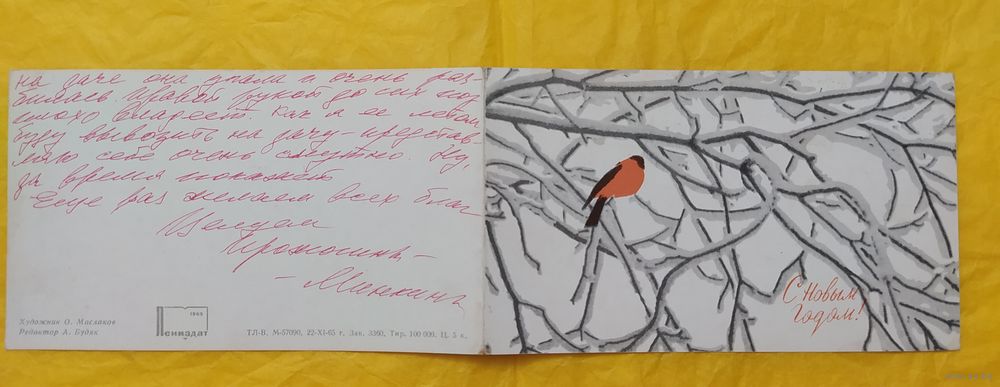 на даче она упала и очень раз-
билась. Правой рукой до сих пор
плохо владеет. Как я ее летом
буду вывозить на дачу - представ-
ляю себе очень смутно. Ну,
да время покажет
Еще раз желаем всех благ
Целуем
- Минкина
Художник О. Маслаков
Редактор А. Будяк
1965
Лениздат
ТЛ-В. М-57090. 22-XI-65 г. Зак. 3360. Тир. 100 000. Ц. 5 к.
С Новым
годом!